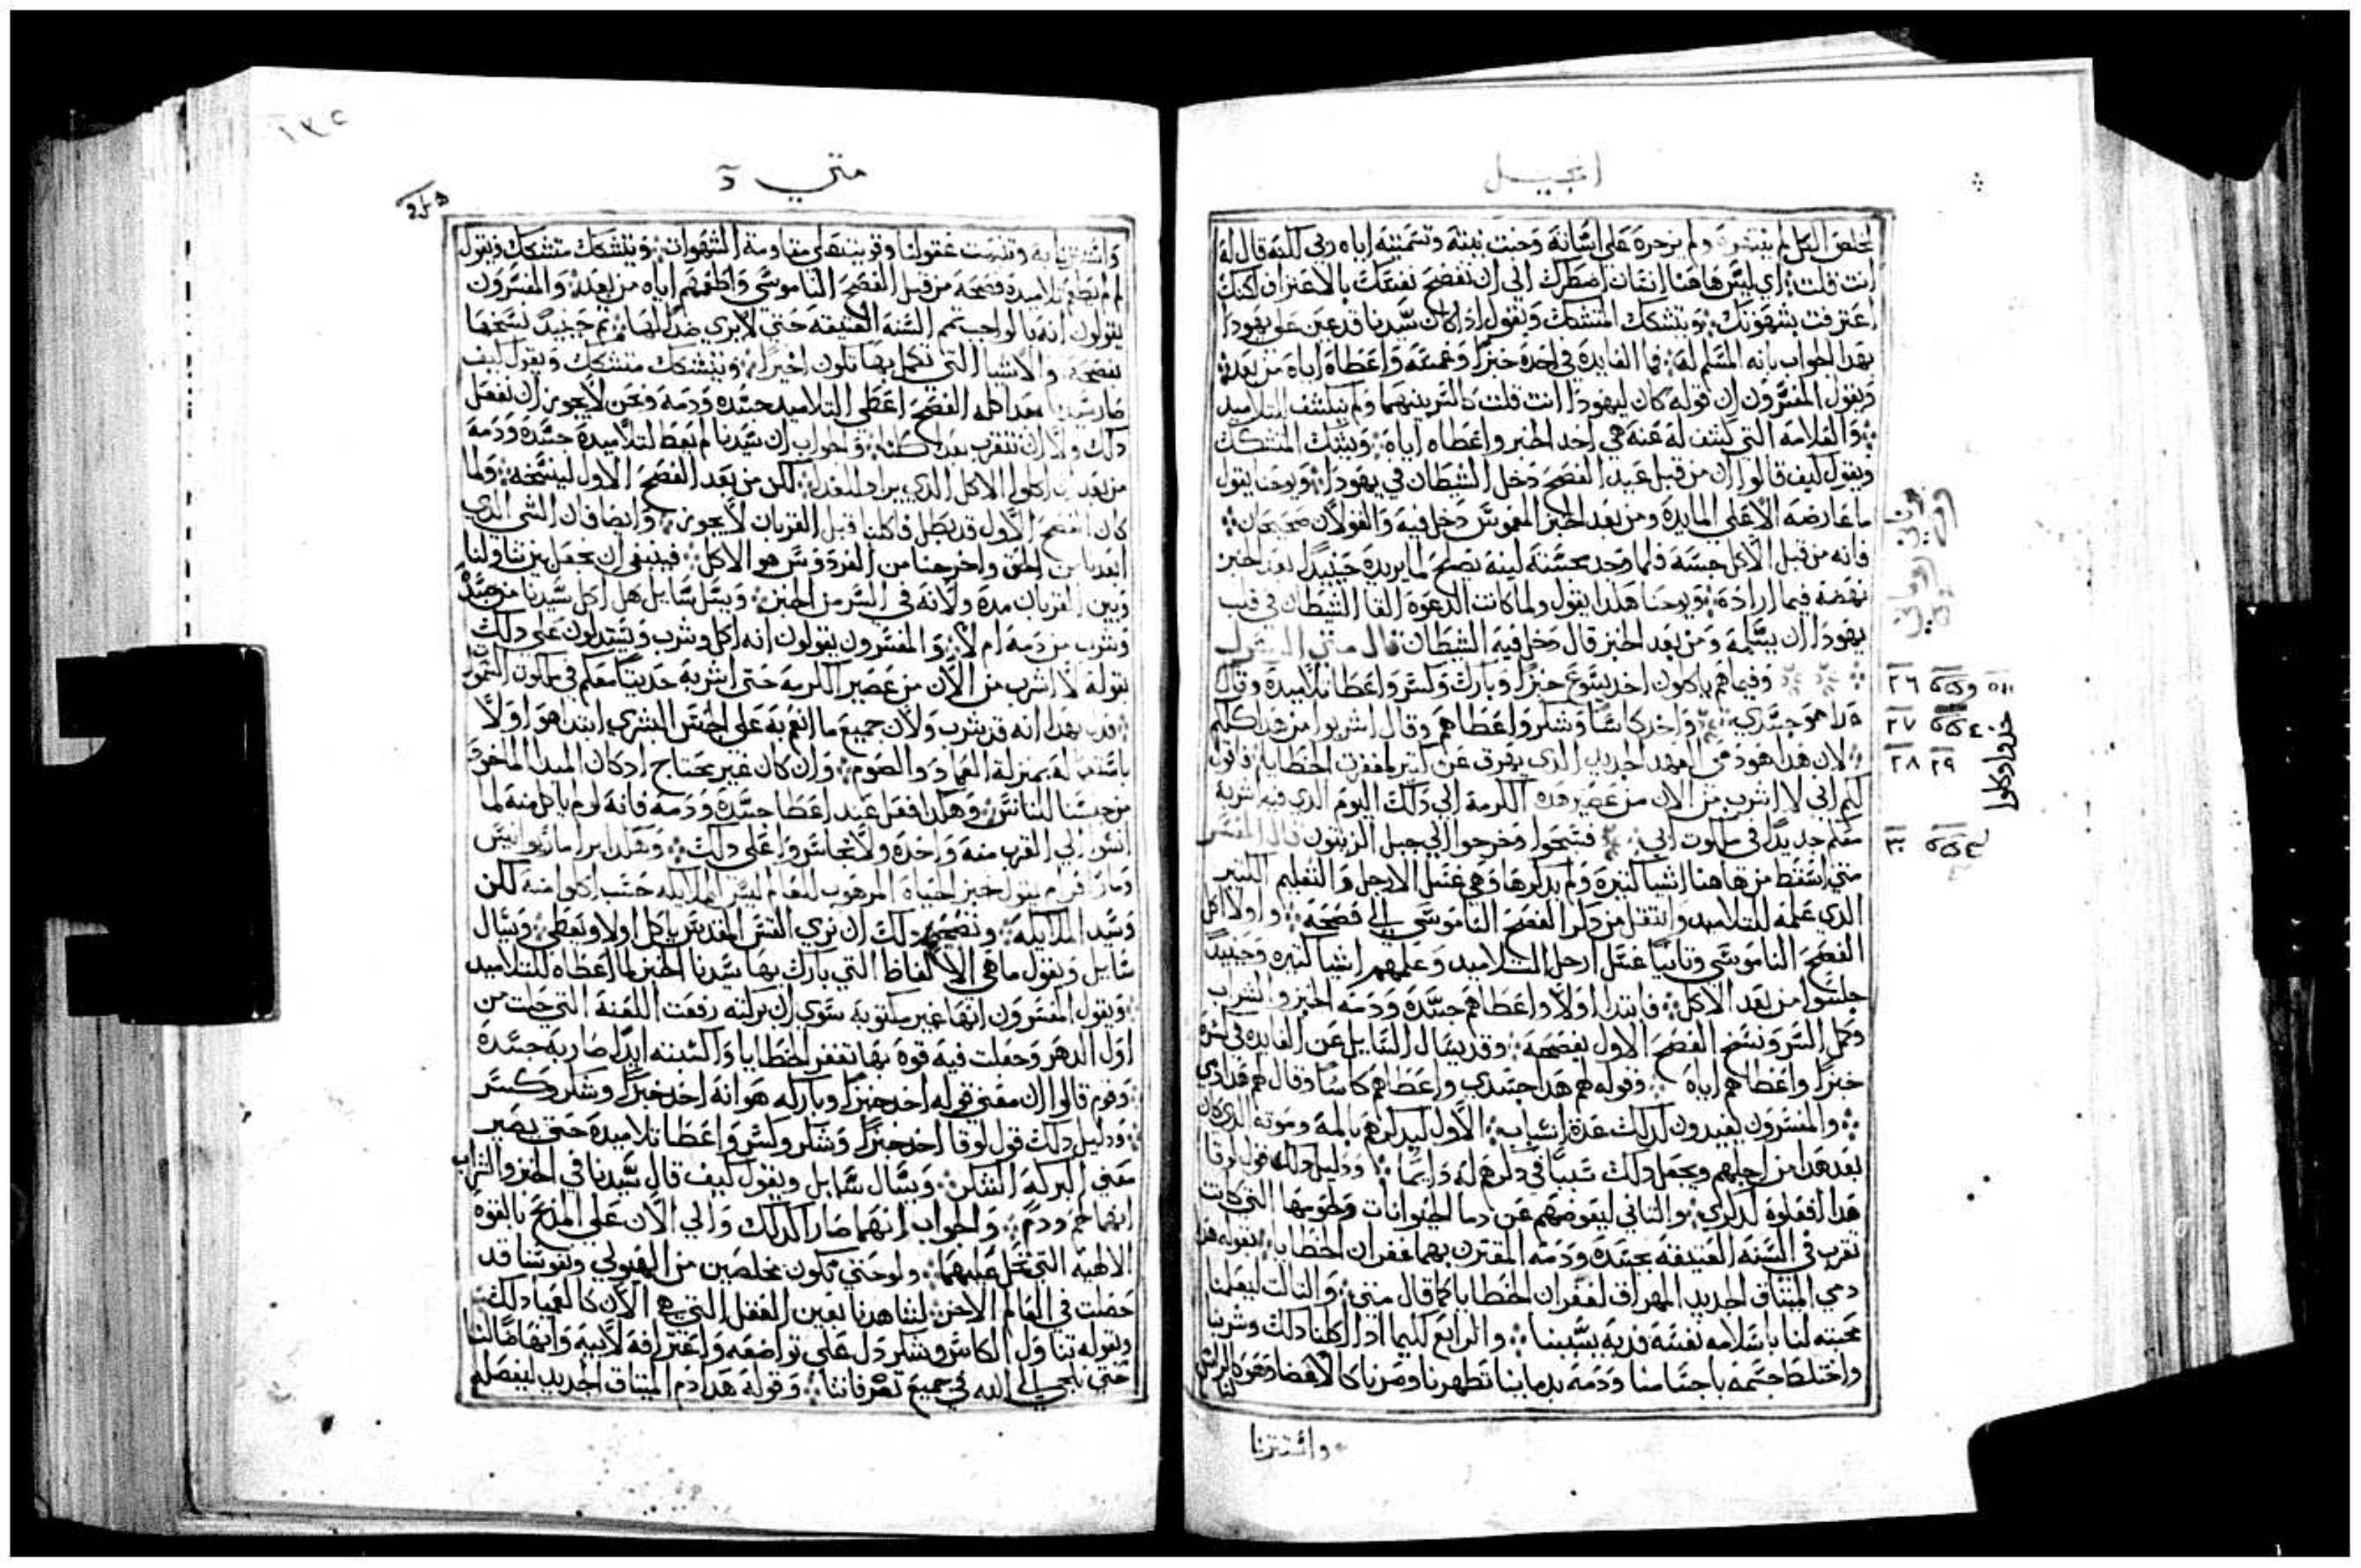 انجيل
لخلص الكل لم ينتهره ولم يزجره على اثمانه وخبث نيته وتسميته اياه ربي لكنه قال له
انت قلت اي ليس هاهنا انسان اضطرك الى ان تفضح نفسك بالاعتراف لكنك
اعترفت بشهوتك ويتشكك المتشكك ويقول اذا كان سيدنا قد عين على يهودا
بهذا الجواب بانه المسلم له فما الفايدة في اخذه خبزا وغمسه واعطاه اياه من بعد
ويقول المفسرون ان قوله كان ليهودا انت قلت كالسر بينهما ولم ينكشف للتلاميد
والعلامه التي كشف له عنه هي اخد الخبز واعطاه اياه ويتشكك المتشكك
ويقول كيف قالوا ان من قبل عيد الفصح دخل الشيطان في يهودا ويوحنا يقول
ما عارضه الا على المايدة ومن بعد الخبز المغموس دخل فيه والقولان صحيحان
فانه من قبل الاكل جسه فلما وجد بمحبته لينه يصلح لما يريده حينيد بعد الخبز
نهضه فيما اراده ويوحنا هكذا يقول ولما كانت الدعوة القا الشيطان في قلب
يهودا ان يسلمه ومن بعد الخبز قال دخل فيه الشيطان قال متى البشير
وفيما هم ياكلون اخد يسوع خبزا وبارك وكسر واعطا تلاميده وقال
هدا هو جسدي واخد كاسا وشكر واعطاهم وقال اشربوا من هدا كلكم
لان هدا هو دمي العهد الجديد الدي يهرق عن كتير لمغفرت الخطايا فاقول
لكم اني لا اشرب من الان من عصير هده الكرمة الى دلك اليوم الدي فيه اشربه
معكم جديدا في ملكوت ابي فسبحوا وخرجوا الى جبل الزيتون قال المفسر
متى اسقط من هاهنا اشيا كتيرة ولم يدكرها وهي غسل الارجل والتعليم الكتير
الدي علمه للتلاميد وانتقل من دكر الفصح الناموسي الى فصحه واولا اكل
الفصح الناموسي وتانيا غسل ارجل التلاميد وعلمهم اشيا كتيره وحينيد
جلسوا من بعد الاكل فابتدا اولا واعطاهم جسده ودمه الخبز والشراب
وكمل السر ونسخ الفصح الاول بفصحه وقد يسال السايل عن الفايده في اخده
خبزا واعطاهم اياه وقوله لهم هدا جسدي واعطاهم كاسا وقال لهم هدا دمي
والمفسرون يفيدون لدلك عدة اسباب الاول ليدكرهم بالمه وموته الدي كان
بعد هدا من اجلهم ويجعل دلك سببا في دكرهم له دايما ودليل دلك قول لوقا
هدا افعلوه لدكري والتاني ليعوضهم عن دما الحيوانات ولحومها التي كانت
تقرب في السنه العتيقه بجسده ودمه المقترن بهما غفران الخطايا بقوله هدا
دمي الميتاق الجديد المهراق لغفران الخطايا كما قال متى والتالت ليعلمنا
محبته لنا باسلامه نفسه فديه بسببنا والرابع لكيما ادا اكلنا دلك وشربنا
واختلط جسمه باجسامنا ودمه بدماينا تطهرنا وصرنا كالاعضا وهو كالراس لنا
واشتترنا
٢٦
٢٧
٢٨ ٢٩
٣٠
خدوا وكلوا
متي
١٣٤
واشتترنا به وتقدست عقولنا وقويت على مقاومة الشهوات ويتشكك متشكك ويقول
لم لم يطعم تلاميده فصحه من قبل الفصح الناموسي واطعمهم اياه من بعده والمفسرون
يقولون انه بالواجب تمم السنه العتيقه حتى لا يرى ضدا لها تم حينيد نسخها
بفصحه والاشيا التي تكمل بها تكون اخيرا ويتشكك متشكك ويقول كيف
صار سيدنا بعد اكله الفصح اعطى التلاميد جسده ودمه ونحن لا يجوز ان نفعل
دلك ولا ان نتقرب بعد اكلنا والجواب ان سيدنا لم يعط لتلاميده جسده ودمه
من بعد ان اكلوا الاكل الدي يراد للغدا لكن من بعد الفصح الاول لينسخه ولما
كان الفصح الاول قد بطل فاكلنا قبل القربان لا يجوز وايضا فان الشي الدي
ابعدنا من الحق واخرجنا من الفردوس هو الاكل فينبغي ان نجعل بين تناولنا
وبين القربان مدة ولانه في السر من الحين ويسل سايل هل اكل سيدنا من جسده
وشرب من دمه ام لا والمفسرون يقولون انه اكل وشرب ويستدلون على دلك
بقوله لا اشرب من الان من عصير الكرمه حتى اشربه جديدا معكم في ملكوت السموات
فدل بهدا انه قد شرب ولان جميع ما انعم به على الجنس البشري ابتدا هو اولا
باستعماله بمنزلة العماد والصوم وان كان غير محتاج اد كان المبدا الماخود
من جنسنا للناس وهكدا فعل عند اعطا جسده ودمه فانه لو لم ياكل منه لما
انسوا الى القرب منه واحده ولا تجاسروا على دلك وهكدا يرا مار يوانيس
ومار افرام يقول خبز الحياه المرهوب للقام ليس الملايكه حسب اكلوا منه لكن
وسيد الملايكه وتصحيح دلك ان نري القس المقدس ياكل اولا ويعطي ويسال
سايل ويقول ما هي الالفاظ التي بارك بها سيدنا الخبز لما اعطاه للتلاميد
ويقول المفسرون انها غير مكتوبه سوى ان بركته رفعت اللعنه التي حلت من
اول الدهر وجعلت فيه قوه بها تغفر الخطايا واكسبته ايدا صار به جسده
وقوم قالوا ان معنى قوله اخد خبزا وباركه هو انه اخد خبزا وشكر وكسر
ودليل دلك قول لوقا اخد خبزا وشكر وكسر واعطا تلاميده حتى يصير
معنى البركه الشكر ويسال سايل ويقول كيف قال سيدنا في الخبز والشراب
انهما لحم ودم والجواب انهما صارا كدلك والى الان على المدبح بالقوه
الالهيه التي تحل عليهما ولو حتى نكون مخلصين من الهيولي ونفوسنا قد
حصلت في العالم الاخر لشاهدنا بعين العقل التي هي الان كالعميا دلك
وبقوله تناول الكاس وشكر دل على تواضعه واعترافه لابيه وايضا لنا
حتى نلتجي الى الله في جميع تصرفاتنا وقوله هدا دم الميتاق الجديد ليفصله